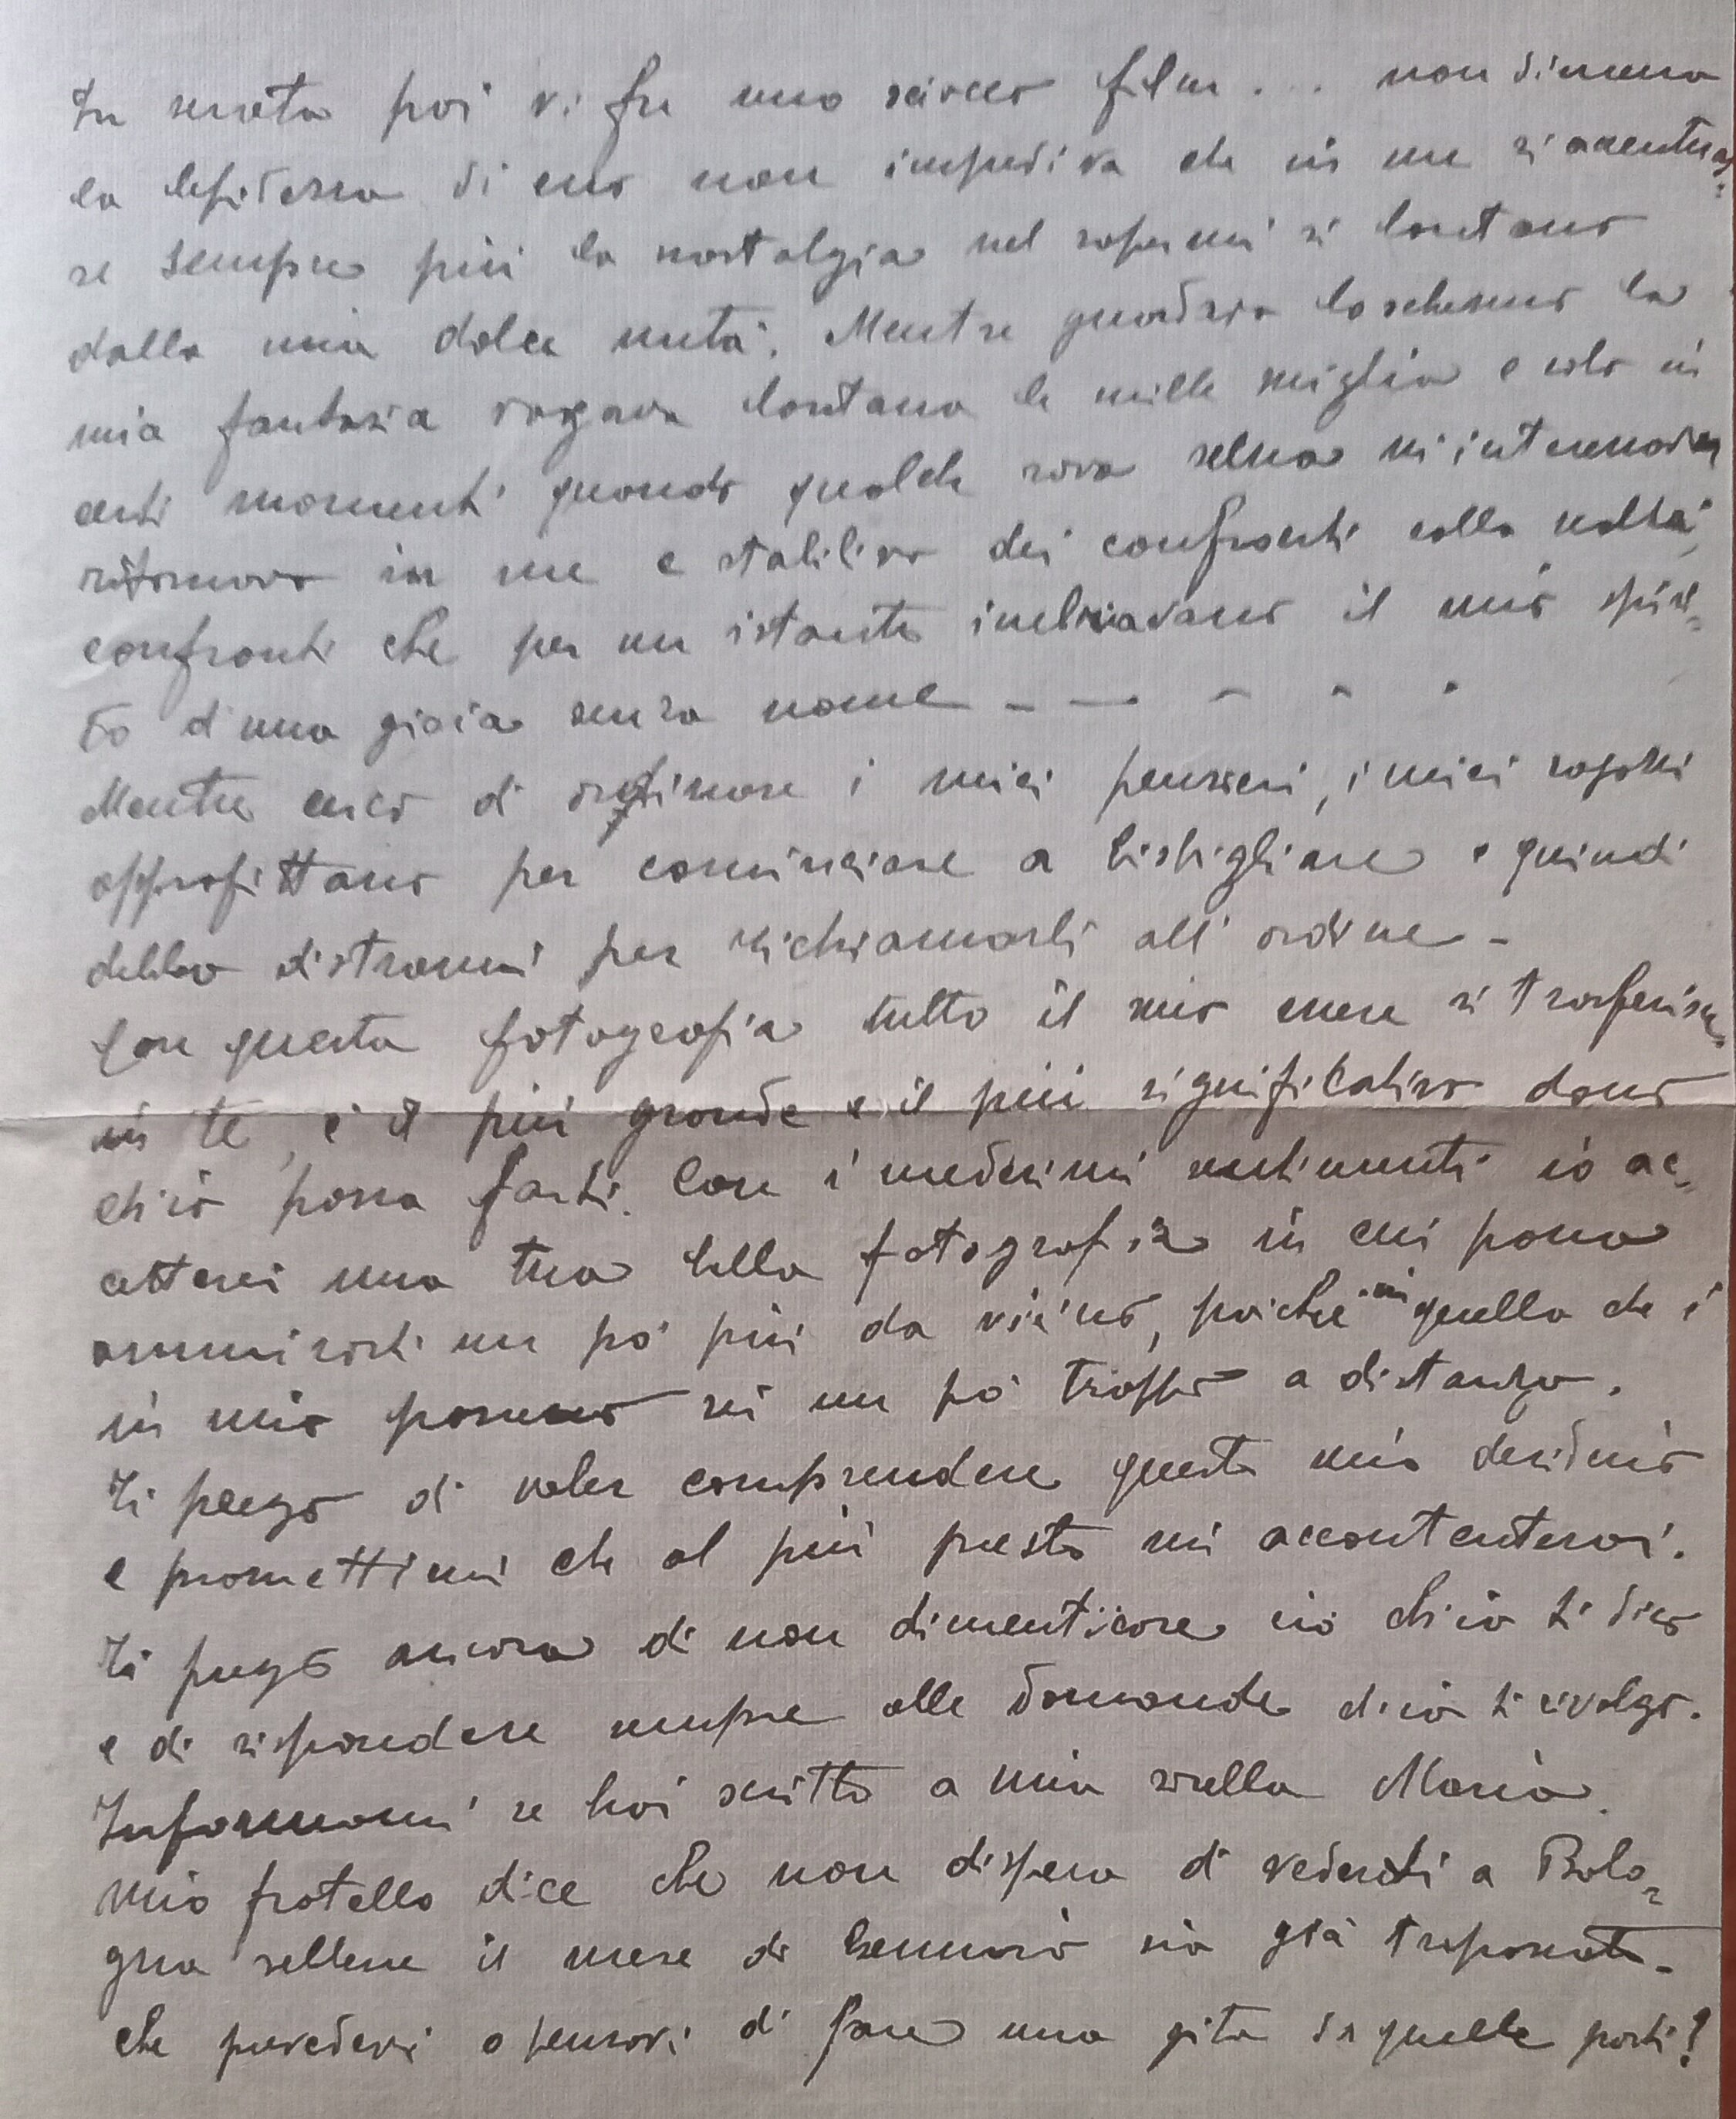 In serata poi vi fu uno sciocco film... non dimeno
la lepidezza di esso non impediva che in me si accentuas=
se sempre più la nostalgia nel sapermi sì lontano
dalla mia dolce metà. Mentre guardavo lo schermo la
mia fantasia vagava lontana le mille miglia e solo in
certi momenti quando qualche rara scena m'interessava
ritornavo in me e stabilivo dei confronti colla realtà,
confronti che per un istante inebriavano il mio spiri=
to d'una gioia senza nome - — - - .
Mentre cerco di ordinare i miei pensieri, i miei ragazzi
approfittano per cominciare a bisbigliare e quindi
debbo distrarmi per richiamarli all'ordine -
Con questa fotografia tutto il mio essere si trasferisce
in te, è il più grande e il più significativo dono
ch'io possa farti. Con i medesimi sentimenti io ac=
cetterei una tua bella fotografia in cui possa
ammirarti un pò più da vicino, poichè in quella che è
in mio possesso sei un pò troppo a distanza.
Ti prego di voler comprendere questo mio desiderio
e promettimi che al più presto mi accontenterai.
Ti prego ancora di non dimenticare ciò ch'io ti dico
e di rispondere sempre alle domande ch'io ti rivolgo.
Informami se hai scritto a mia sorella Maria.
Mio fratello dice che non dispera di vederti a Bolo=
gna sebbene il mese di Gennaio sia già trapassato -
che prevederi o penserai di fare una gita da quelle parti?